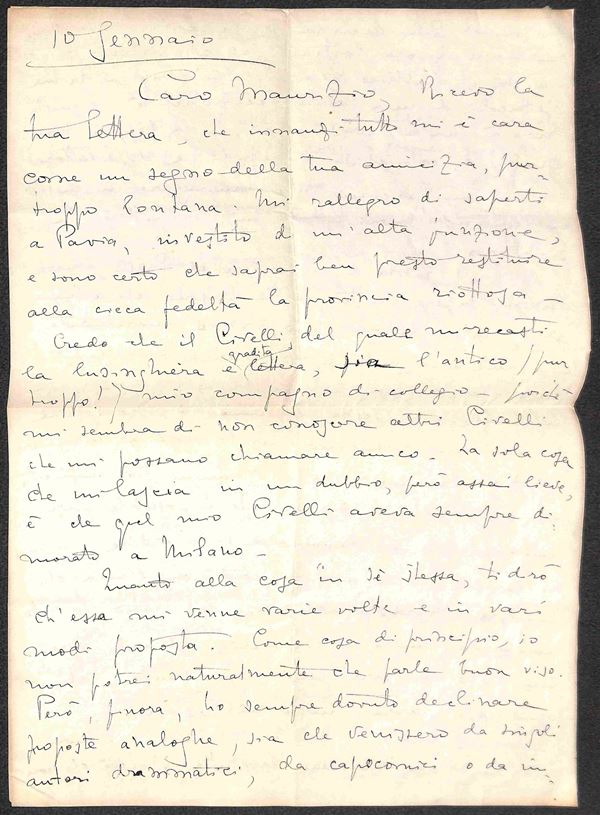 10 Gennaio
Caro Maurizio, Ricevo la
tua lettera, che innanzi tutto mi è cara
come un segno della tua amicizia, pur-
troppo lontana. Mi rallegro di saperti
a Pavia, investito d'un'alta funzione,
e sono certo che saprai ben presto restituire
alla cieca fedeltà la provincia riottosa —
Credo che il Civelli, del quale mi recasti
la lusinghiera e gradita lettera, sia l'antico (pur
troppo!) mio compagno di collegio — poichè
mi sembra di non conoscere altri Civelli
che mi possano chiamare amico. La sola cosa
che mi lascia in un dubbio, però assai lieve,
è che quel mio Civelli aveva sempre di-
morato a Milano —
Quanto alla cosa in sè stessa, ti dirò
ch'essa mi venne varie volte e in vari
modi proposta. Come cosa di principio, io
non potrei naturalmente che farle buon viso.
Però, finora, ho sempre dovuto declinare
proposte analoghe, sia che venissero da singoli
autori drammatici, da capocomici o da im-